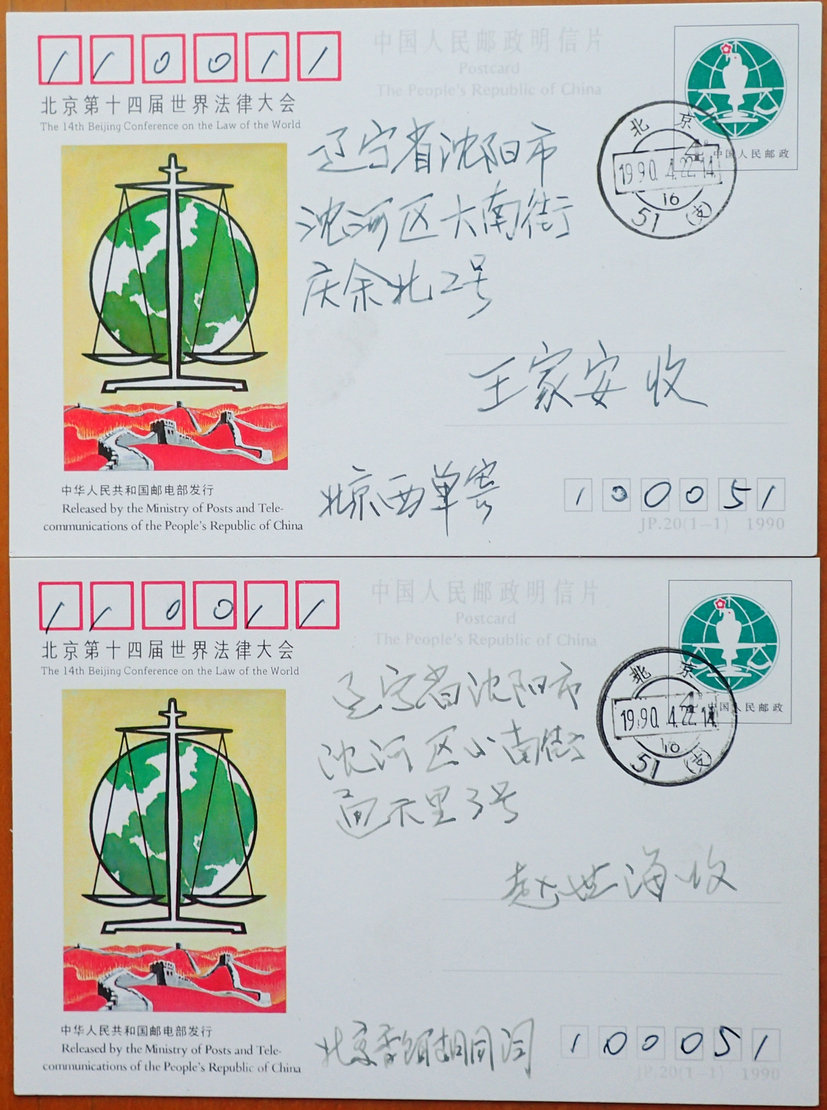 110011
中国人民邮政明信片
Postcard
The People's Republic of China
北京第十四届世界法律大会
The 14th Beijing Conference on the Law of the World
中国人民邮政
北京
1990.4.22.14
16
51(支)
辽宁省沈阳市
沈河区大南街
庆余北2号
王家安 收
北京西单
100051
中华人民共和国邮电部发行
Released by the Ministry of Posts and Tele-
communications of the People's Republic of China
JP.20(1-1) 1990
110011
中国人民邮政明信片
Postcard
The People's Republic of China
北京第十四届世界法律大会
The 14th Beijing Conference on the Law of the World
中国人民邮政
北京
1990.4.22.14
16
51(支)
辽宁省沈阳市
沈河区小南街
里3号
赵世海 收
北京胡同
100051
中华人民共和国邮电部发行
Released by the Ministry of Posts and Tele-
communications of the People's Republic of China
JP.20(1-1) 1990